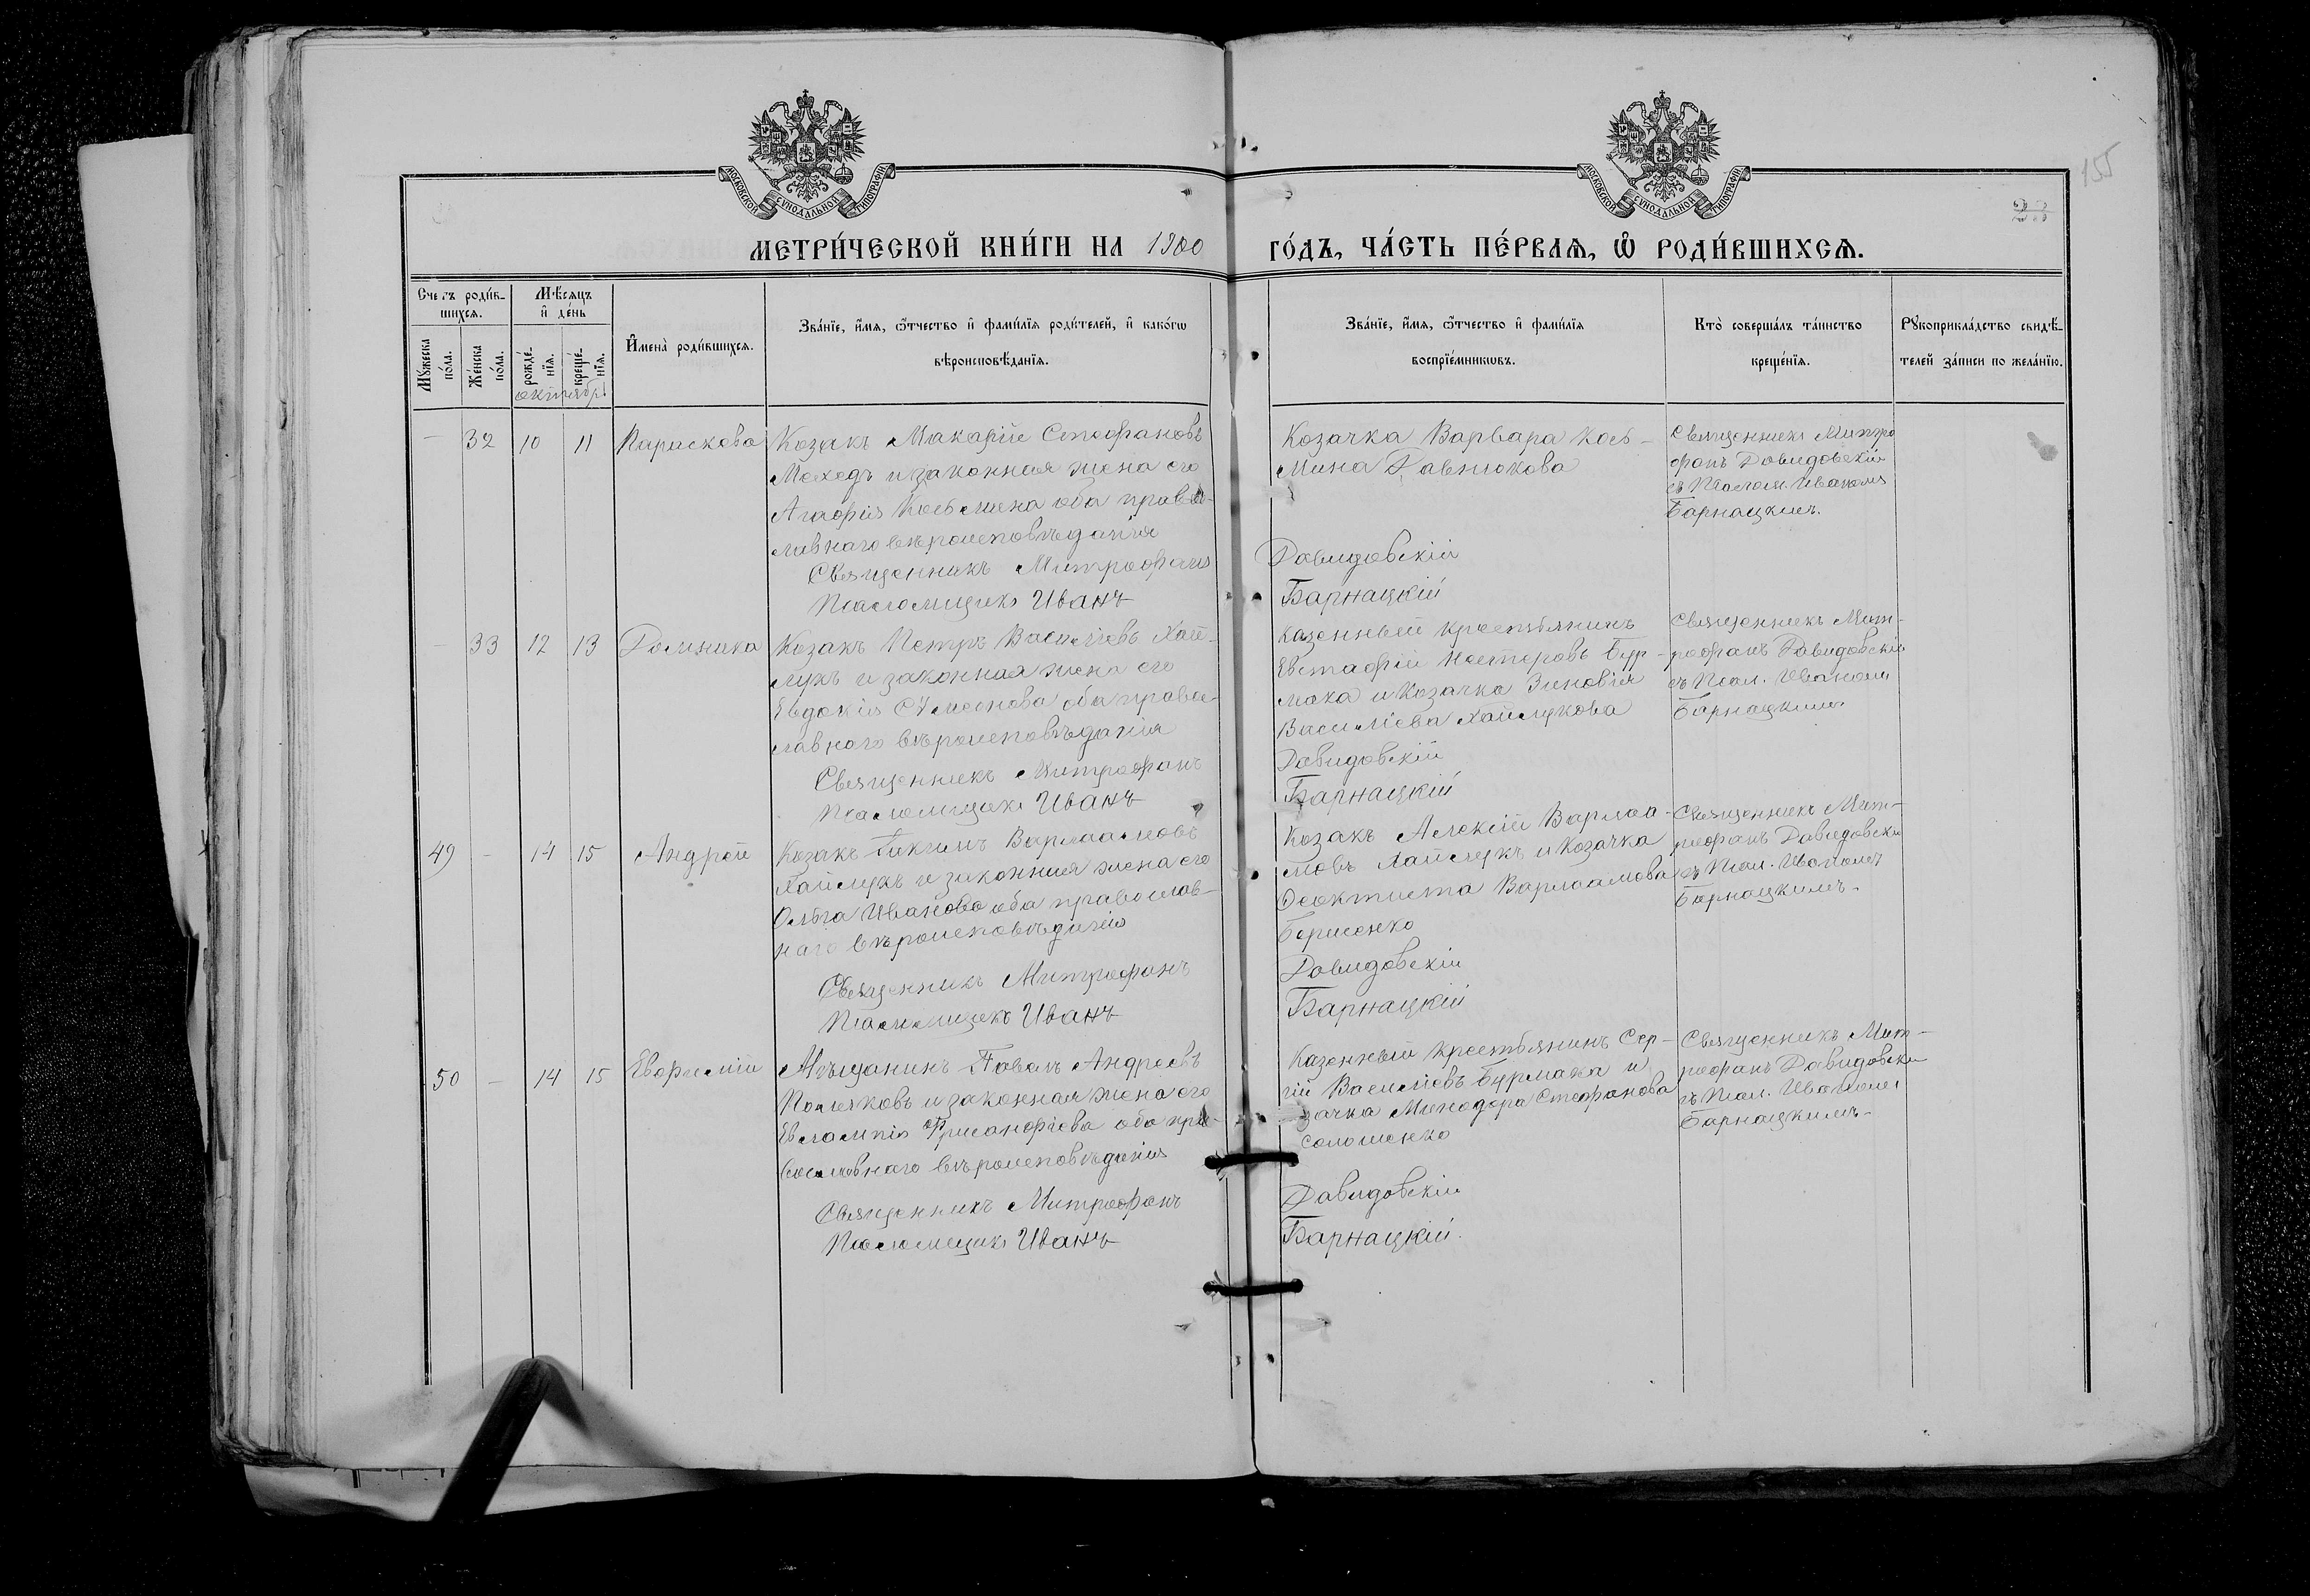 МОСКОВСКОЙ СѴНОДАЛЬНОЙ ТИПОГРАФІИ
МОСКОВСКОЙ СѴНОДАЛЬНОЙ ТИПОГРАФІИ
155
23
МЕТРИ́ЧЕСКОЙ КНИ́ГИ НА 1900 ГО́ДЪ, ЧА́СТЬ ПЕ́РВАѦ, Ѽ РОДИ́ВШИХСѦ.
Счетъ роди́в-
шихсѧ.
Мꙋ́жеска по́ла.
Же́нска по́ла.
Мѣ́сѧцъ и҆ де́нь
рожде́-нїѧ.
креще́-нїѧ.
октября
И҆мена̀ роди́вшихсѧ.
Зва́нїе, и҆́мѧ, ѻ҆́тчество и҆ фами́лїѧ роди́телей, и҆ како́гѡ
вѣроисповѣ́данїѧ.
Зва́нїе, и҆́мѧ, ѻ҆́тчество и҆ фами́лїѧ
воспрїе́мникѡвъ.
Кто̀ соверша́лъ та́инство
креще́нїѧ.
Рꙋкоприкла́дство свидѣ́-
телей за́писи по жела́нїю.
– 32 10 11 Параскева
Козакъ Макарій Стефановъ
Мехедъ и законная жена его
Агафія Косьмина оба правос-
лавнаго вѣроисповѣданія
Священникъ Митрофанъ
Псаломщикъ Иванъ
Козачка Варвара Кось-
мина Равнюкова
Давидовскій
Барнацкій
Священникъ Митро
фанъ Давидовскій
съ Псалом. Иваномъ
Барнацкимъ.
– 33 12 13 Домника
Козакъ Петръ Василіевъ Хай-
лукъ и законная жена его
Евдокія Сѵмеонова оба правос-
лавнаго вѣроисповѣданія
Священникъ Митрофанъ
Псаломщикъ Иванъ
Казенный крестьянинъ
Евстафій Несторовъ Бур-
мака и Козачка Зиновія
Василіева Хайлукова
Давидовскій
Барнацкій
Священникъ Мит-
рофанъ Давидовскій
съ Псал. Иваномъ
Барнацкимъ
49 – 14 15 Андрей
Козакъ Варлаамовъ
Хайлукъ и законная жена его
Ольга Иванова оба православ-
наго вѣроисповѣданія
Священникъ Митрофанъ
Псаломщикъ Иванъ
Козакъ Алексій Варлаа-
мовъ Хайлукъ и Козачка
Ѳеоктиста Варлаамова
Борисенко
Давидовскій
Барнацкій
Священникъ Мит-
рофанъ Давидовскій
съ Псал. Иваномъ
Барнацкимъ.
50 – 14 15 Евфимій
Мѣщанинъ Павелъ Андреевъ
Поляковъ и законная жена его
Евлампія оба пра-
вославнаго вѣроисповѣданія
Священникъ Митрофанъ
Псаломщикъ Иванъ
Казенный крестьянинъ Сер-
гій Василіевъ Бурмака и
зачка Минодора Стефанова
Солошенко
Давидовскій
Барнацкій.
Священникъ Мит-
рофанъ Давидовскій
съ Псал. Иваномъ
Барнацкимъ.